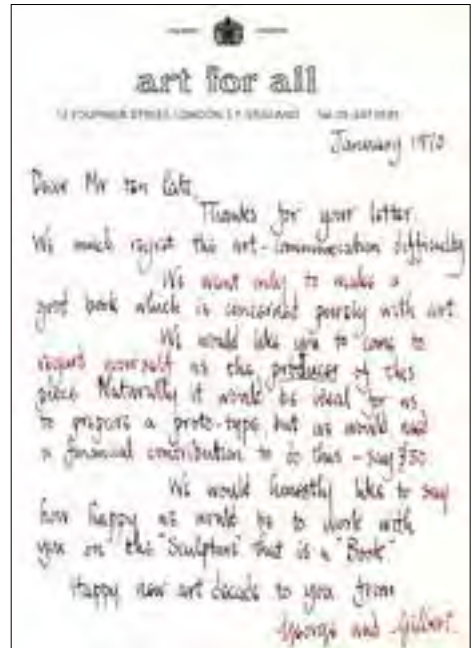 art for all
12 FOURNIER STREET, LONDON, E.1. ENGLAND Tel. 01-247
January 1970
Dear Mr ten Cate,
Thanks for your letter.
We much regret this art-communication difficulty
We want only to make a
great book which is concerned purely with art.
We would like you to come to
regard yourself as the producer of this
piece Naturally it would be ideal for us
to prepare a proto-type, but we would need
a financial contribution to do this - say £50
We would honestly like to say
how happy we would be to work with
you on this "Sculpture" that is a "Book"
Happy new art decade to you from
George and Gilbert.